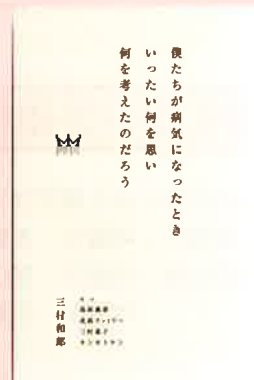 僕たちが病気になったとき
いったい何を思い
何を考えたのだろう
三村和郎